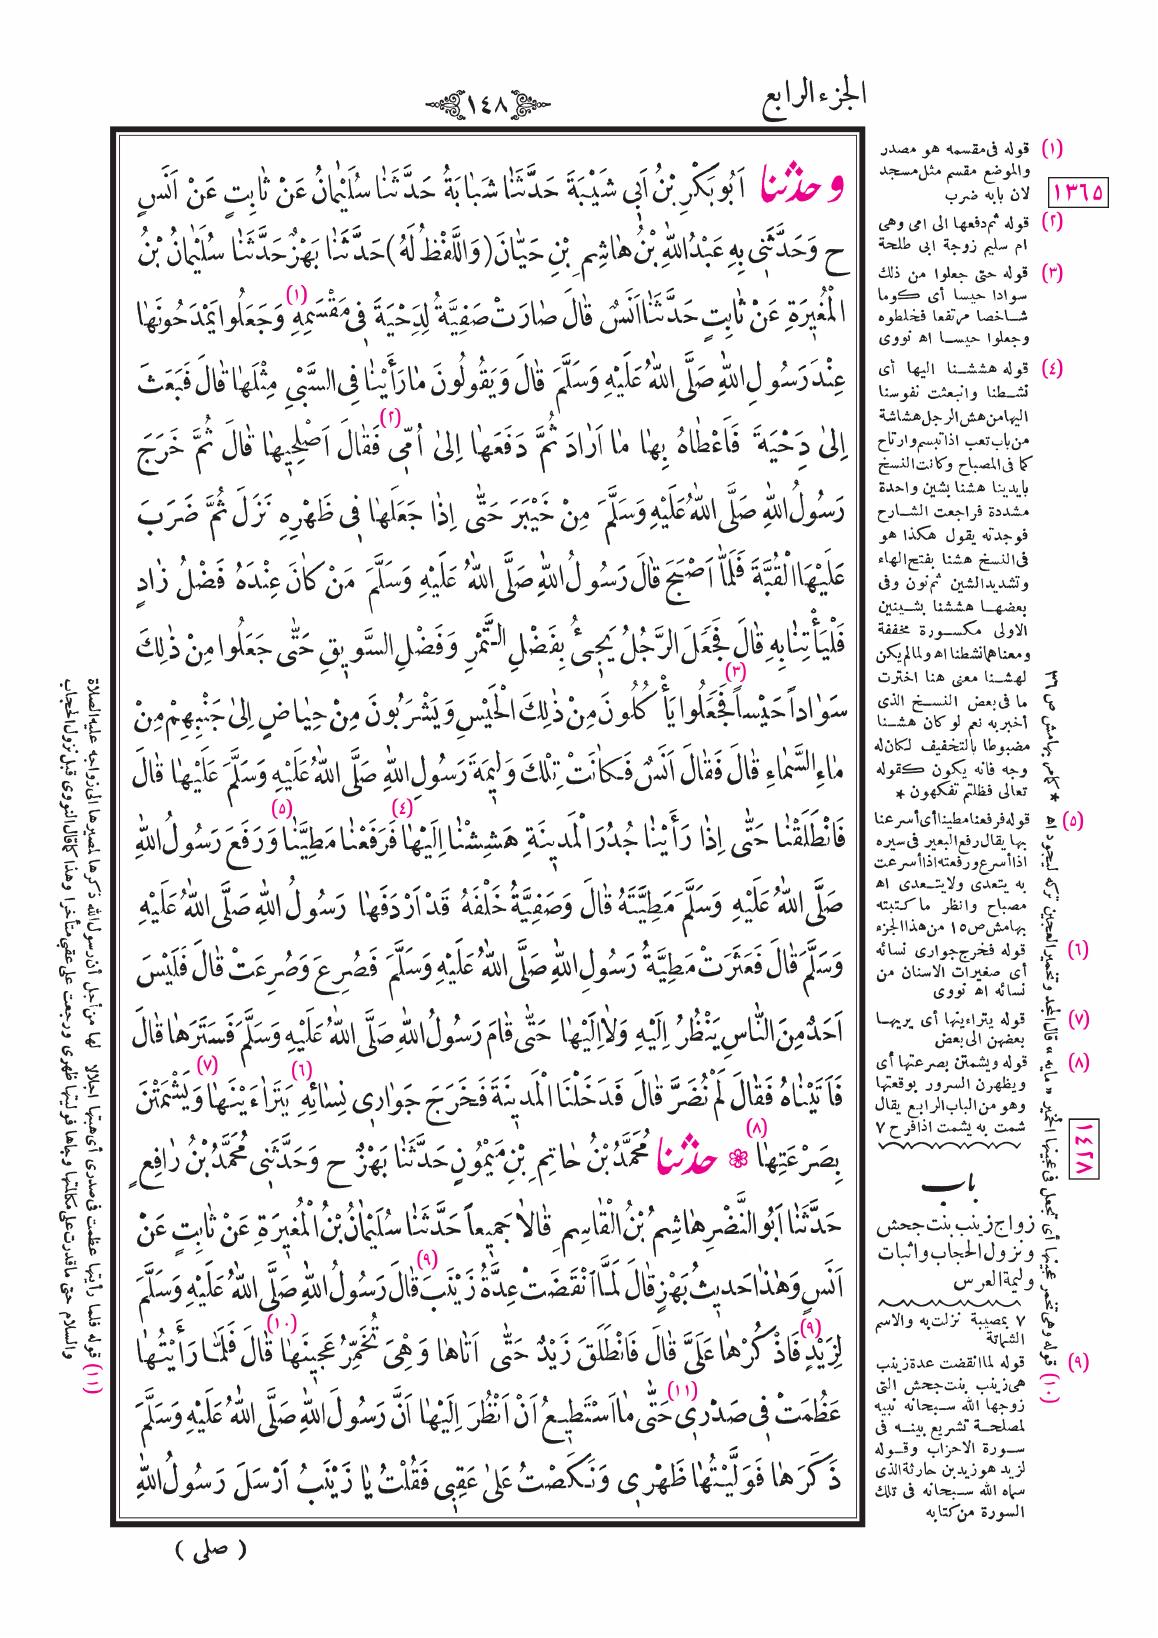 الجزء الرابع
١٤٨
وحدثنا اَبُو بَكْرِ بْنُ اَبِي شَيْبَةَ حَدَّثَنَا شَبَابَةُ حَدَّثَنَا سُلَيْمَانُ عَنْ ثَابِتٍ عَنْ اَنَسٍ
ح وَحَدَّثَنِي بِهِ عَبْدُ اللهِ بْنُ هَاشِمِ بْنِ حَيَّانَ (وَاللَّفْظُ لَهُ) حَدَّثَنَا بَهْزٌ حَدَّثَنَا سُلَيْمَانُ بْنُ
الْمُغِيرَةِ عَنْ ثَابِتٍ حَدَّثَنَا اَنَسٌ قَالَ صَارَتْ صَفِيَّةُ لِدِحْيَةَ فِي مَقْسَمِهِ (١) وَجَعَلُوا يَمْدَحُونَهَا
عِنْدَ رَسُولِ اللهِ صَلَّى اللهُ عَلَيْهِ وَسَلَّمَ قَالَ وَيَقُولُونَ مَا رَأَيْنَا فِي السَّبْيِ مِثْلَهَا قَالَ فَبَعَثَ
اِلَى دِحْيَةَ فَاَعْطَاهُ بِهَا مَا اَرَادَ ثُمَّ دَفَعَهَا اِلَى اُمِّي (٢) فَقَالَ اَصْلِحِيهَا قَالَ ثُمَّ خَرَجَ
رَسُولُ اللهِ صَلَّى اللهُ عَلَيْهِ وَسَلَّمَ مِنْ خَيْبَرَ حَتَّى اِذَا جَعَلَهَا فِي ظَهْرِهِ نَزَلَ ثُمَّ ضَرَبَ
عَلَيْهَا الْقُبَّةَ فَلَمَّا اَصْبَحَ قَالَ رَسُولُ اللهِ صَلَّى اللهُ عَلَيْهِ وَسَلَّمَ مَنْ كَانَ عِنْدَهُ فَضْلُ زَادٍ
فَلْيَأْتِنَا بِهِ قَالَ فَجَعَلَ الرَّجُلُ يَجِيءُ بِفَضْلِ التَّمْرِ وَفَضْلِ السَّوِيقِ حَتَّى جَعَلُوا مِنْ ذٰلِكَ
سَوَاداً حَيْساً (٣) فَجَعَلُوا يَأْكُلُونَ مِنْ ذٰلِكَ الْحَيْسِ وَيَشْرَبُونَ مِنْ حِيَاضٍ اِلَى جَنْبِهِمْ مِنْ
مَاءِ السَّمَاءِ قَالَ فَقَالَ اَنَسٌ فَكَانَتْ تِلْكَ وَلِيمَةَ رَسُولِ اللهِ صَلَّى اللهُ عَلَيْهِ وَسَلَّمَ عَلَيْهَا قَالَ
فَانْطَلَقْنَا حَتَّى اِذَا رَأَيْنَا جُدُرَ الْمَدِينَةِ هَشِشْنَا اِلَيْهَا (٤) فَرَفَعْنَا مَطِيَّنَا (٥) وَرَفَعَ رَسُولُ اللهِ
صَلَّى اللهُ عَلَيْهِ وَسَلَّمَ مَطِيَّتَهُ قَالَ وَصَفِيَّةُ خَلْفَهُ قَدْ اَرْدَفَهَا رَسُولُ اللهِ صَلَّى اللهُ عَلَيْهِ
وَسَلَّمَ قَالَ فَعَثَرَتْ مَطِيَّةُ رَسُولِ اللهِ صَلَّى اللهُ عَلَيْهِ وَسَلَّمَ فَصُرِعَ وَصُرِعَتْ قَالَ فَلَيْسَ
اَحَدٌ مِنَ النَّاسِ يَنْظُرُ اِلَيْهِ وَلَا اِلَيْهَا حَتَّى قَامَ رَسُولُ اللهِ صَلَّى اللهُ عَلَيْهِ وَسَلَّمَ فَسَتَرَهَا قَالَ
فَاَتَيْنَاهُ فَقَالَ لَمْ نُضَرَّ قَالَ فَدَخَلْنَا الْمَدِينَةَ فَخَرَجَ جَوَارِي نِسَائِهِ (٦) يَتَرَاءَيْنَهَا (٧) وَيَشْمَتْنَ
بِصَرْعَتِهَا (٨) ❁ حدثنا مُحَمَّدُ بْنُ حَاتِمِ بْنِ مَيْمُونٍ حَدَّثَنَا بَهْزٌ ح وَحَدَّثَنِي مُحَمَّدُ بْنُ رَافِعٍ
حَدَّثَنَا اَبُو النَّضْرِ هَاشِمُ بْنُ الْقَاسِمِ قَالَا جَمِيعاً حَدَّثَنَا سُلَيْمَانُ بْنُ الْمُغِيرَةِ عَنْ ثَابِتٍ عَنْ
اَنَسٍ وَهٰذَا حَدِيثُ بَهْزٍ قَالَ لَمَّا انْقَضَتْ عِدَّةُ زَيْنَبَ (٩) قَالَ رَسُولُ اللهِ صَلَّى اللهُ عَلَيْهِ وَسَلَّمَ
لِزَيْدٍ (٩) فَاذْكُرْهَا عَلَيَّ قَالَ فَانْطَلَقَ زَيْدٌ حَتَّى اَتَاهَا وَهِيَ تُخَمِّرُ عَجِينَهَا (١٠) قَالَ فَلَمَّا رَأَيْتُهَا
عَظُمَتْ فِي صَدْرِي (١١) حَتَّى مَا اَسْتَطِيعُ اَنْ اَنْظُرَ اِلَيْهَا اَنَّ رَسُولَ اللهِ صَلَّى اللهُ عَلَيْهِ وَسَلَّمَ
ذَكَرَهَا فَوَلَّيْتُهَا ظَهْرِي وَنَكَصْتُ عَلَى عَقِبِي فَقُلْتُ يَا زَيْنَبُ اَرْسَلَ رَسُولُ اللهِ
( صلى )
(١) قوله فى مقسمه هو مصدر
والموضع مقسم مثل مسجد
لان بابه ضرب
١٣٦٥
(٢) قوله ثم دفعها الى امى وهى
ام سليم زوجة ابى طلحة
(٣) قوله حتى جعلوا من ذلك
سوادا حيسا أى كوما
شاخصا مرتفعا فخلطوه
وجعلوا حيسا اه نووى
(٤) قوله هششنا اليها أى
نشطنا وانبعثت نفوسنا
اليها من هش الرجل هشاشة
من باب تعب اذا تبسم وارتاح
كما فى المصباح وكانت النسخ
بايدينا هشنا بشين واحدة
مشددة فراجعت الشارح
فوجدته يقول هكذا هو
فى النسخ هشنا بفتح الهاء
وتشديد الشين ثم نون وفى
بعضها هششنا بشينين
الاولى مكسورة مخففة
ومعناهما نشطنا اه ولما لم يكن
لهشنا معنى هنا اخترت
ما فى بعض النسخ الذى
أخبر به نعم لو كان هشنا
مضبوطا بالتخفيف لكان له
وجه فانه يكون كقوله
تعالى فظلتم تفكهون *
(٥) قوله فرفعنا مطينا أى أسرعنا
بها يقال رفع البعير فى سيره
اذا أسرع ورفعته اذا أسرعت
به يتعدى ولا يتعدى اه
مصباح وانظر ما كتبته
بهامش ص ١٥ من هذا الجزء
(٦) قوله فخرج جوارى نسائه
أى صغيرات الاسنان من
نسائه اه نووى
(٧) قوله يتراءينها أى يريها
بعضهن الى بعض
(٨) قوله ويشمتن بصرعتها أى
ويظهرن السرور بوقعتها
وهو من الباب الرابع يقال
شمت به يشمت اذا فرح ٧
١٤٢٨
باب
زواج زينب بنت جحش
ونزول الحجاب واثبات
وليمة العرس
٧ بمصيبة نزلت به والاسم
الشماتة
(٩) قوله لما انقضت عدة زينب
هى زينب بنت جحش التى
زوجها الله سبحانه نبيه
لمصلحة تشريع بينه فى
سورة الاحزاب وقوله
لزيد هو زيد بن حارثة الذى
سماه الله سبحانه فى تلك
السورة من كتابه
(١٠) قوله وهى تخمر عجينها أى تجعل فى عجينها الخمير قال المجد وتخمير العجين تركه ليجود اه
* كما مر بهامش ص
(١١) قوله فلما رأيتها عظمت فى صدرى أى هبتها اجلالا لها من أجل أن رسول الله ذكرها لمصيرها الى زواجه عليه الصلاة
والسلام حتى ما قدرت على مكالمتها وجاها فوليتها ظهرى ورجعت على عقبى متأخرا وهذا كما قال النووى قبل نزول الحجاب